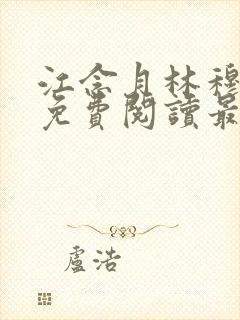 江念月林穆
免費閱讀最
盧浩